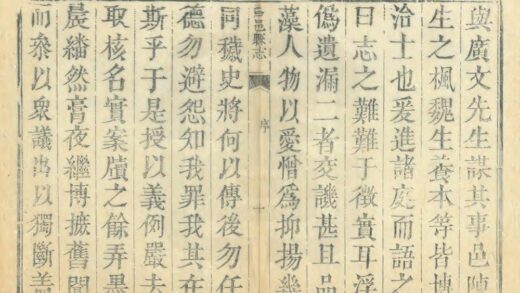 與廣文先生謀其事邑陳
生之楓魏生養本等皆博
洽士也爰進諸庭而語之
曰志之難難于徵實耳浮
僞遺漏二者交譏甚且品
藻人物以愛憎爲抑揚幾
邑縣志
序
一
同穢史將何以傳後勿任
德勿避怨知我罪我其在
斯乎于是授以義例嚴夫
取核名實案牘之餘弄墨
晨繙然膏夜繼博摭舊聞
而叅以衆議出以獨斷善